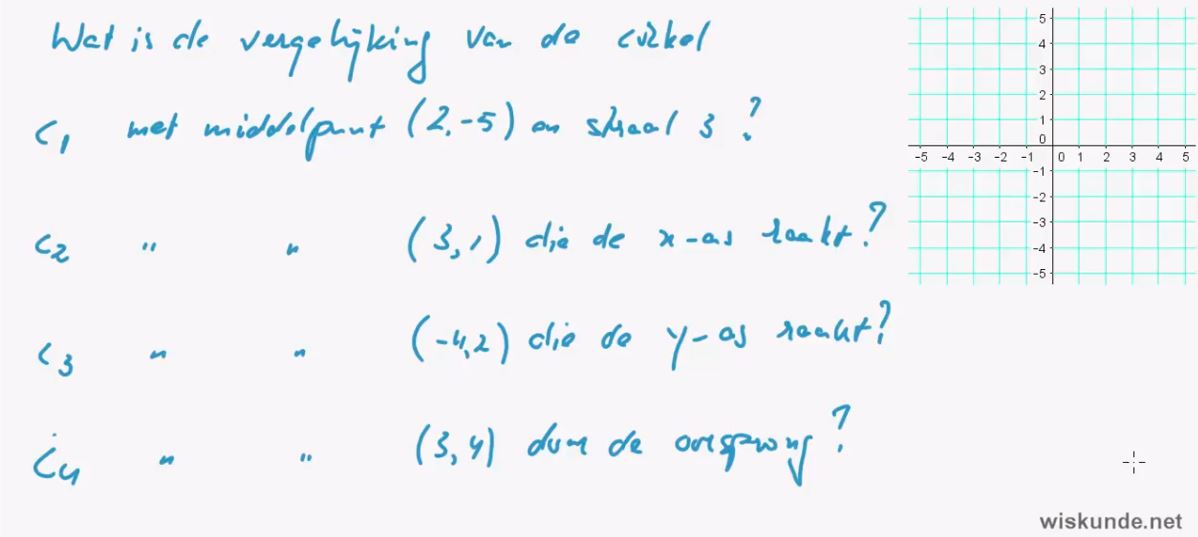 Wat is de vergelijking van de cirkel
C1 met middelpunt (2,-5) en straal 3?
C2 " " (3,1) die de x-as raakt?
C3 " " (-4,2) die de y-as raakt?
C4 " " (3,4) door de oorsprong?
5
4
3
2
1
0
-5 -4 -3 -2 -1 0 1 2 3 4 5
-1
-2
-3
-4
-5
wiskunde.net